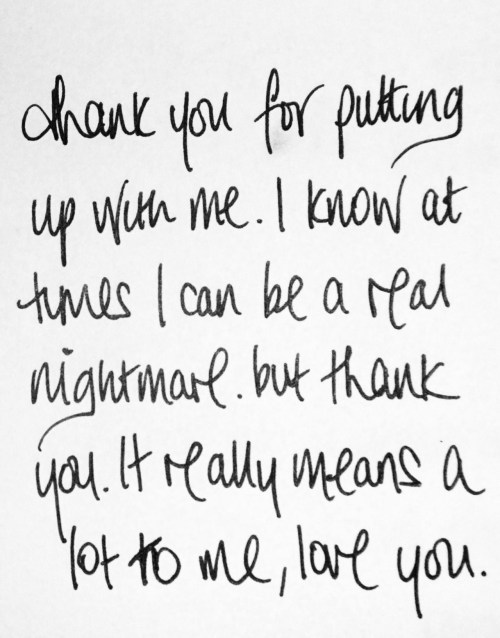 thank you for putting
up with me. I know at
times I can be a real
nightmare. but thank
you. It really means a
lot to me, love you.